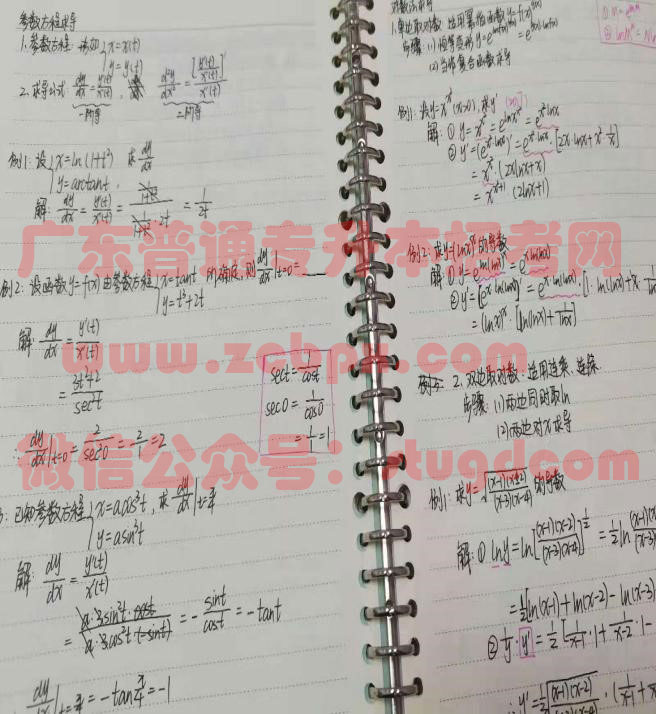 参数方程求导
1.参数方程: 形如 { x=x(t) y=y(t)
2.求导公式: dy/dx = y'(t)/x'(t), d²y/dx² = [y'(t)/x'(t)]'/x'(t)
一阶导 二阶导
例1: 设 { x=ln(1+t²) y=arctant, 求 dy/dx
解: dy/dx = y'(t)/x'(t) = (1/(1+t²))/(1/(1+t²)·2t) = 1/2t
例2: 设函数y=f(x)由参数方程 { x=tant y=t³+2t 所确定, 则 dy/dx|t=0 = ____
解: dy/dx = y'(t)/x'(t)
= (3t²+2)/sec²t
∴ dy/dx|t=0 = 2/sec²0 = 2/1 = 2
sect = 1/cost
sec0 = 1/cos0
= 1/1 = 1
3: 已知参数方程 { x=acos³t y=asin³t, 求 dy/dx|t=π/4
解: dy/dx = y'(t)/x'(t)
= (a·3sin²t·cost)/(a·3cos²t·(-sint)) = -sint/cost = -tant
dy/dx|t=π/4 = -tanπ/4 = -1
对数法求导
1.单边取对数: 适用幂指函数
步骤: (1)
(2)当作复合函数求导
例1: 设y=x^x² (x>0), 求y'
解: ① y=x^x² = e^lnx^x² = e^x²·lnx
② y'=(e^x²·lnx)' = e^x²·lnx·[2x·lnx+x²·1/x]
= x^x²·(2xlnx+x)
= x^x²+1 (2lnx+1)
例2: 求y=(lnx)^x的导数
解: ① y=e^ln(lnx)^x = e^x·ln(lnx)
② y'=[e^x·ln(lnx)]' = e^x·ln(lnx)·[1·ln(lnx)+x·
= (lnx)^x·[ln(lnx)+1/lnx]
2.双边取对数: 适用连乘、连除
步骤: (1)两边同时取ln
(2)两边对x求导
例1: 求y=√((x-1)(x-2)/(x-3)(x-4))的导数
解: ① lny=ln[(x-1)(x-2)/(x-3)(x-4)]^1/2 = 1/2 ln
= 1/2[ln(x-1)+ln(x-2)-ln(x-3)-
② 1/y·y' = 1/2[1/(x-1)·1+1/(x-2)·1-
y'=1/2√((x-1)(x-2)/(x-3)(x-4))·(
广东普通专升本报考网
www.zcbpu.com
微信公众号：stuadcom